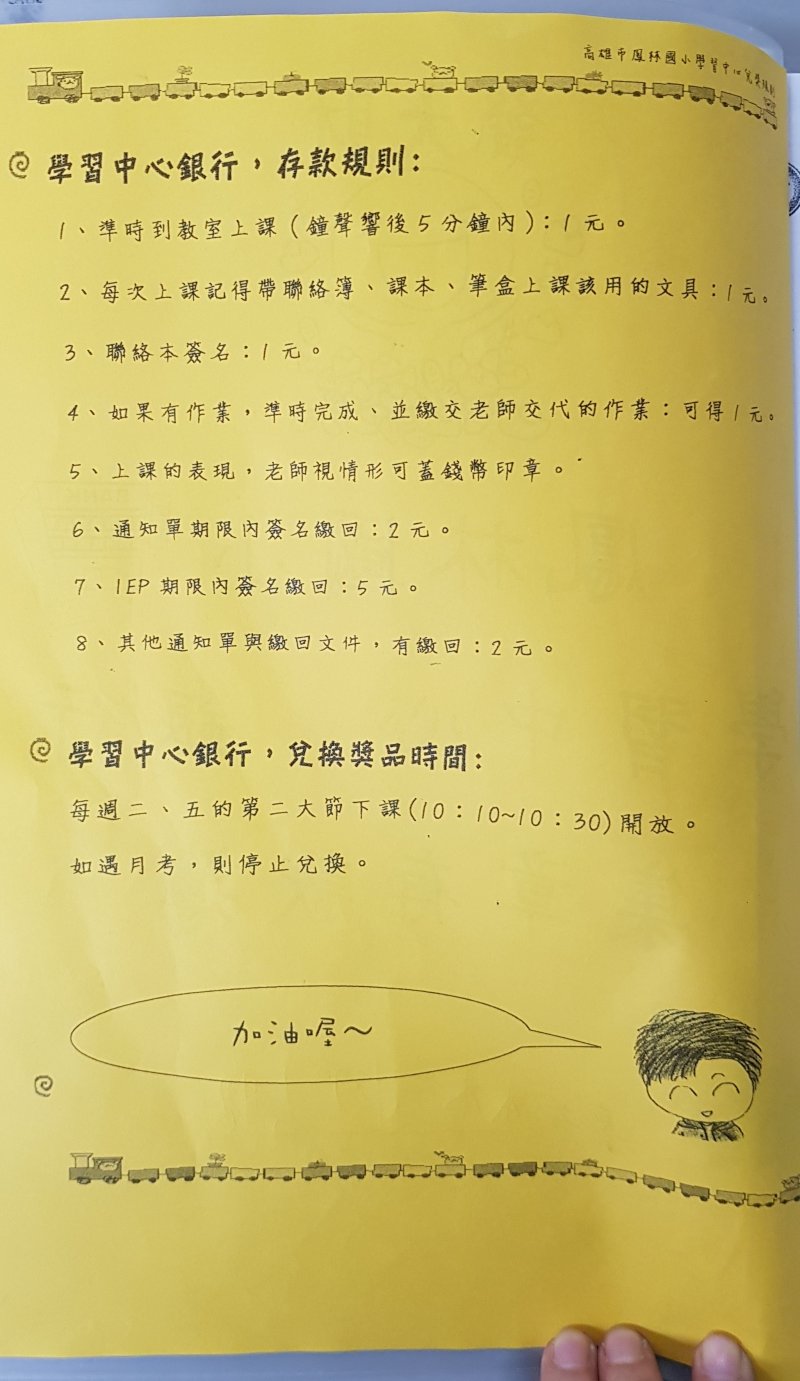 高雄市鳳林國小學習中心兌獎規則
學習中心銀行，存款規則:
1、準時到教室上課(鐘聲響後5分鐘內)：1元。
2、每次上課記得帶聯絡簿、課本、筆盒上課該用的文具：1元。
3、聯絡本簽名：1元。
4、如果有作業，準時完成、並繳交老師交代的作業：可得1元。
5、上課的表現，老師視情形可蓋錢幣印章。
6、通知單期限內簽名繳回：2元。
7、IEP期限內簽名繳回：5元。
8、其他通知單與繳回文件，有繳回：2元。
學習中心銀行，兌換獎品時間:
每週二、五的第二大節下課(10：10~10：30)開放。
如遇月考，則停止兌換。
加油喔～